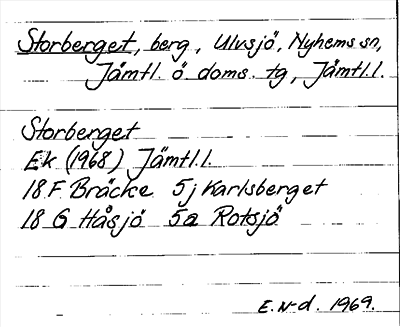 Storberget, berg, Ulvsjö, Nyhems sn,
Jämtl. ö. doms. tg, Jämtl.l.
Storberget
Ek (1968) Jämtl.l.
18 F Bräcke 5j Karlsberget
18 G Håsjö 5a Rotsjö
E. N-d. 1969.